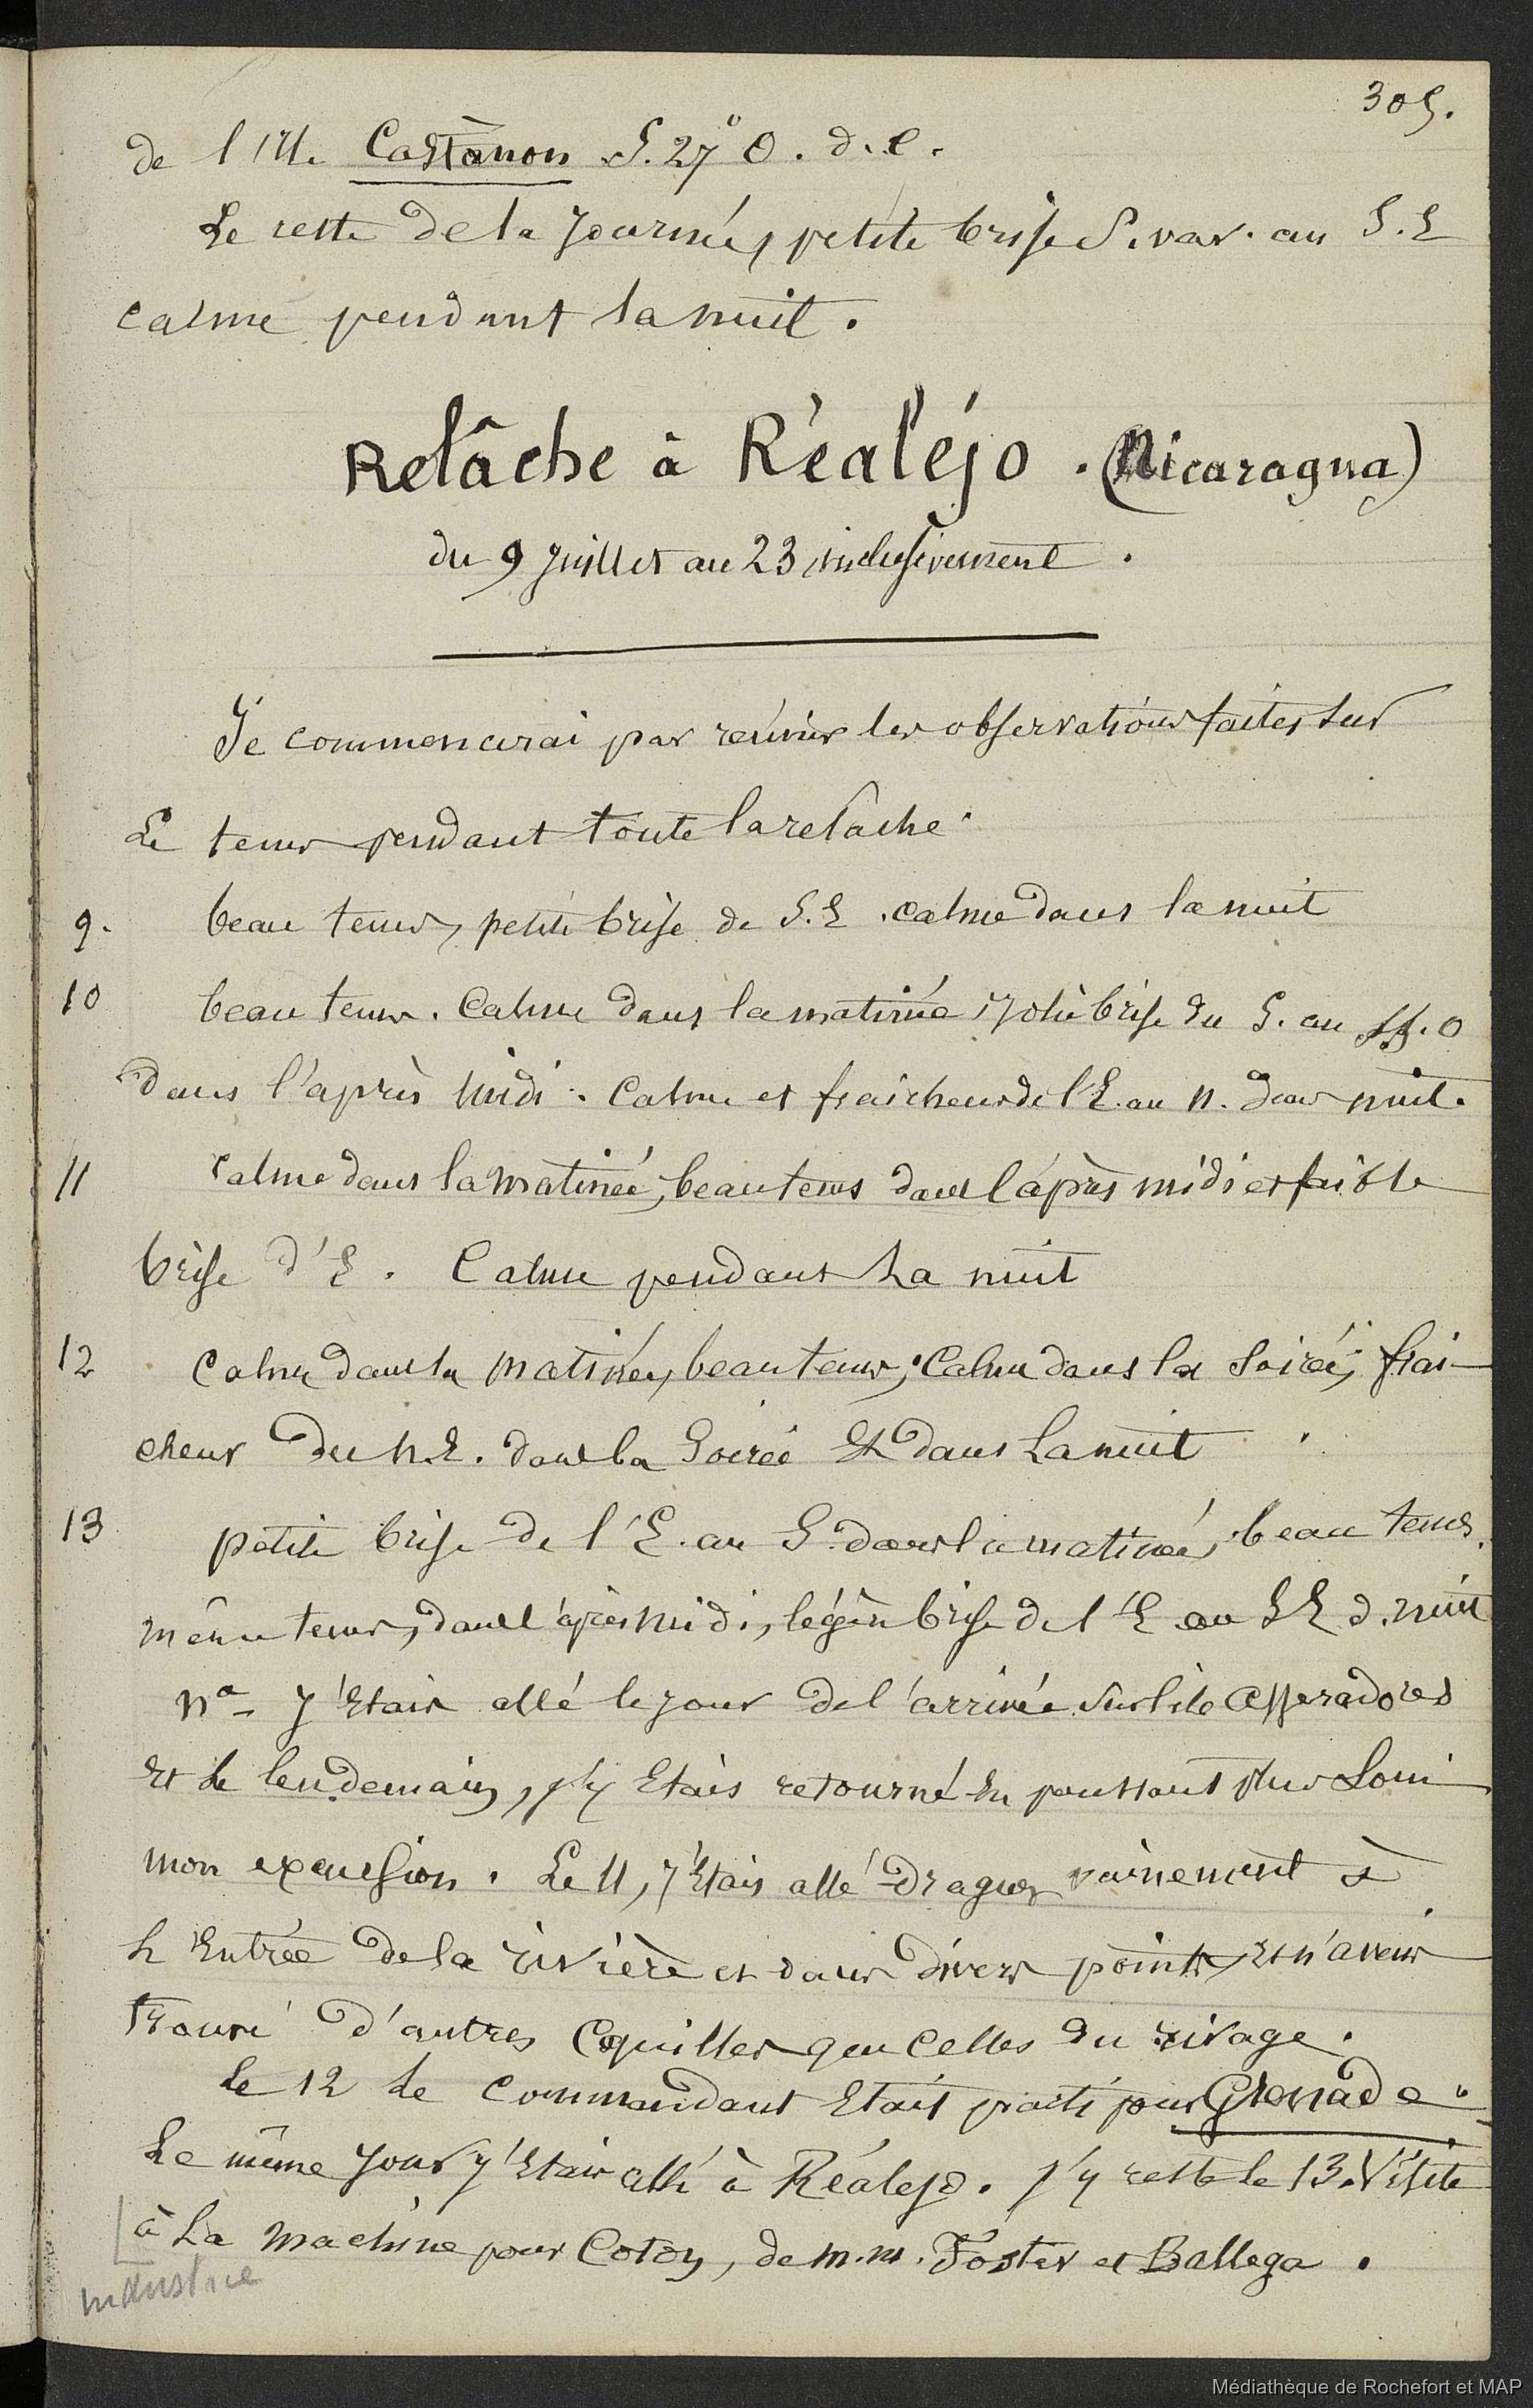 305.
de l'Ile Castañon S. 27° O. d. C.
Le reste de la journée, petite brise S. var. au S. E
calme pendant la nuit.
Relâche à Réaléjo. (Nicaragua)
du 9 Juillet au 23 inclusivement.
Je commencerai par réunir les observations faites sur
Le tems pendant toute la relâche.
9. beau tems, petite brise de S. E. calme dans la nuit
10 beau tems. Calme dans la matinée, jolie brise du S. au SS. O
dans l'après midi. Calme et fraicheur de l'E. au N. dans nuit.
11 calme dans la matinée, beau tems dans l'après midi et faible
brise d'E. Calme pendant La nuit
12 calme dans la matinée, beau tems, Calme dans la soirée, frai-
cheur du N. E. dans la Soirée Et dans La nuit
13 petite brise de l'E. au S. dans la matinée, beau tems.
même tems, dans l'après midi, légère brise de l'E au SE d. nuit
Na - j'Etais allé le jour de l'arrivée sur l'ile Asseradores
Et le lendemain, j'y Etais retourné En poussant plus Loin
mon excursion. Le 11, j'Etais allé Draguer vainement à
L'Entrée de la rivière et dans divers points, Et n'avais
trouvé d'autres Coquilles que Celles du rivage.
le 12 Le Commandant Etait parti pour Grenade.
Le même jour j'Etais allé à Réalejo. J'y reste le 13. Visite
à La machine pour Coton, de m.m. Foster et Ballega.
industrie
Médiathèque de Rochefort et MAP